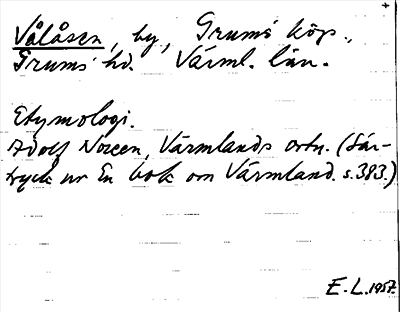 Vålåsen, by, Grums köp.,
Grums hd. Värml. län.
Etymologi.
Adolf Noreen, Värmlands ortn. (Sär-
tryck ur En bok om Värmland. s. 383.)
E. L. 1957.